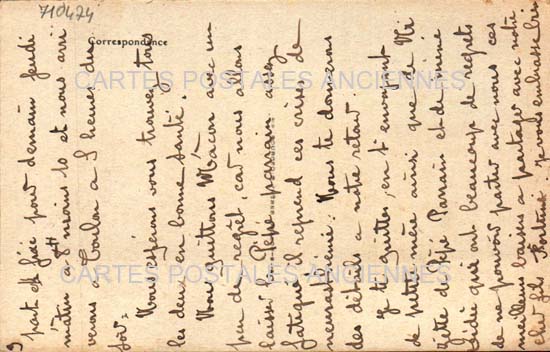 710474
Correspondance
CARTES POSTALES ANCIENNES
CARTES POSTALES ANCIENNES
part est fixé pour demain jeudi
matin à 7h moins 10 et nous arri
verons à Toulon à 5 heures du
soir =
Nous espérons vous trouver tous
les deux en bonne santé.
Nous quittons Mâcon avec un
peu de regret, car nous allons
laisser le Pépé parrain assez
fatigué il reprend ces crises de
neurasthénie. Nous te donnerons
des détails à notre retour
Je te quitte, en t'envoyant
petite mère ainsi que de
Pépé Parrain et de mémé
qui ont beaucoup de regrets
de ne pouvoir partir avec nous ces
meilleurs baisers à partager avec notre
cher fils je vous embrasse bien